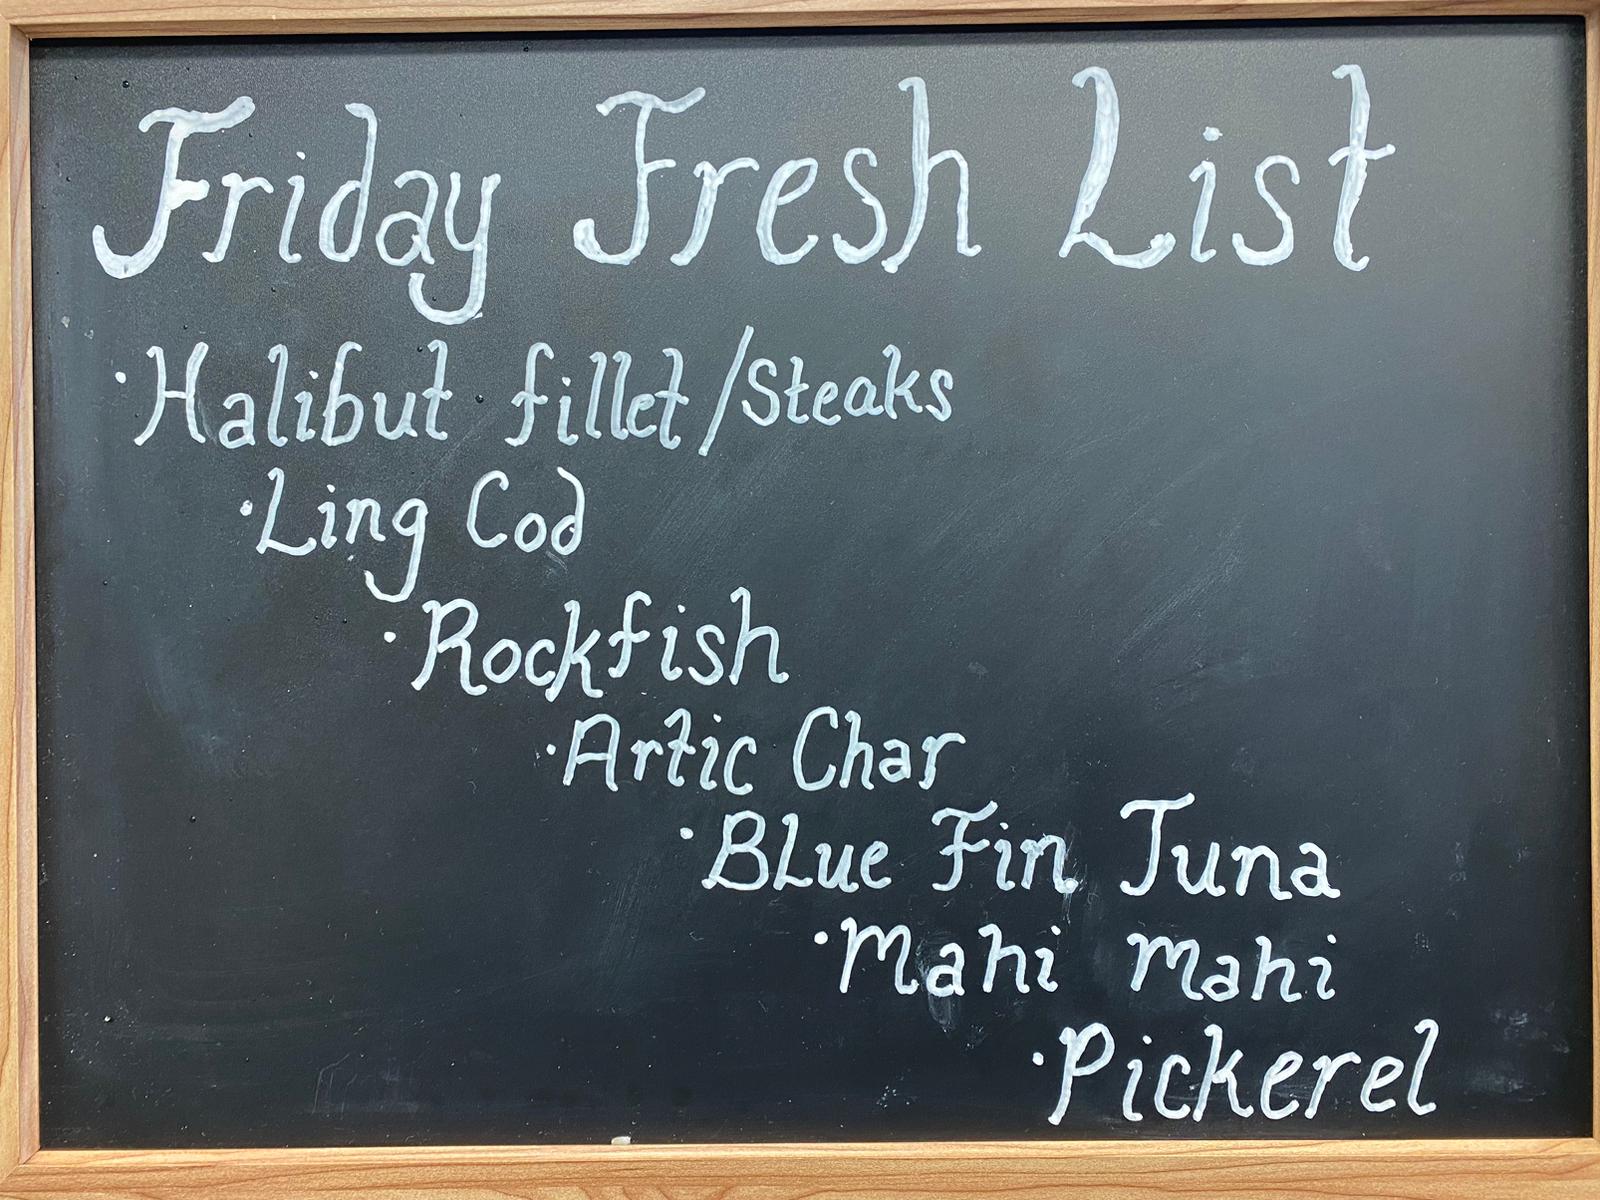 Friday Fresh List
· Halibut fillet/Steaks
· Ling Cod
· Rockfish
· Artic Char
· Blue Fin Tuna
· Mahi mahi
· Pickerel